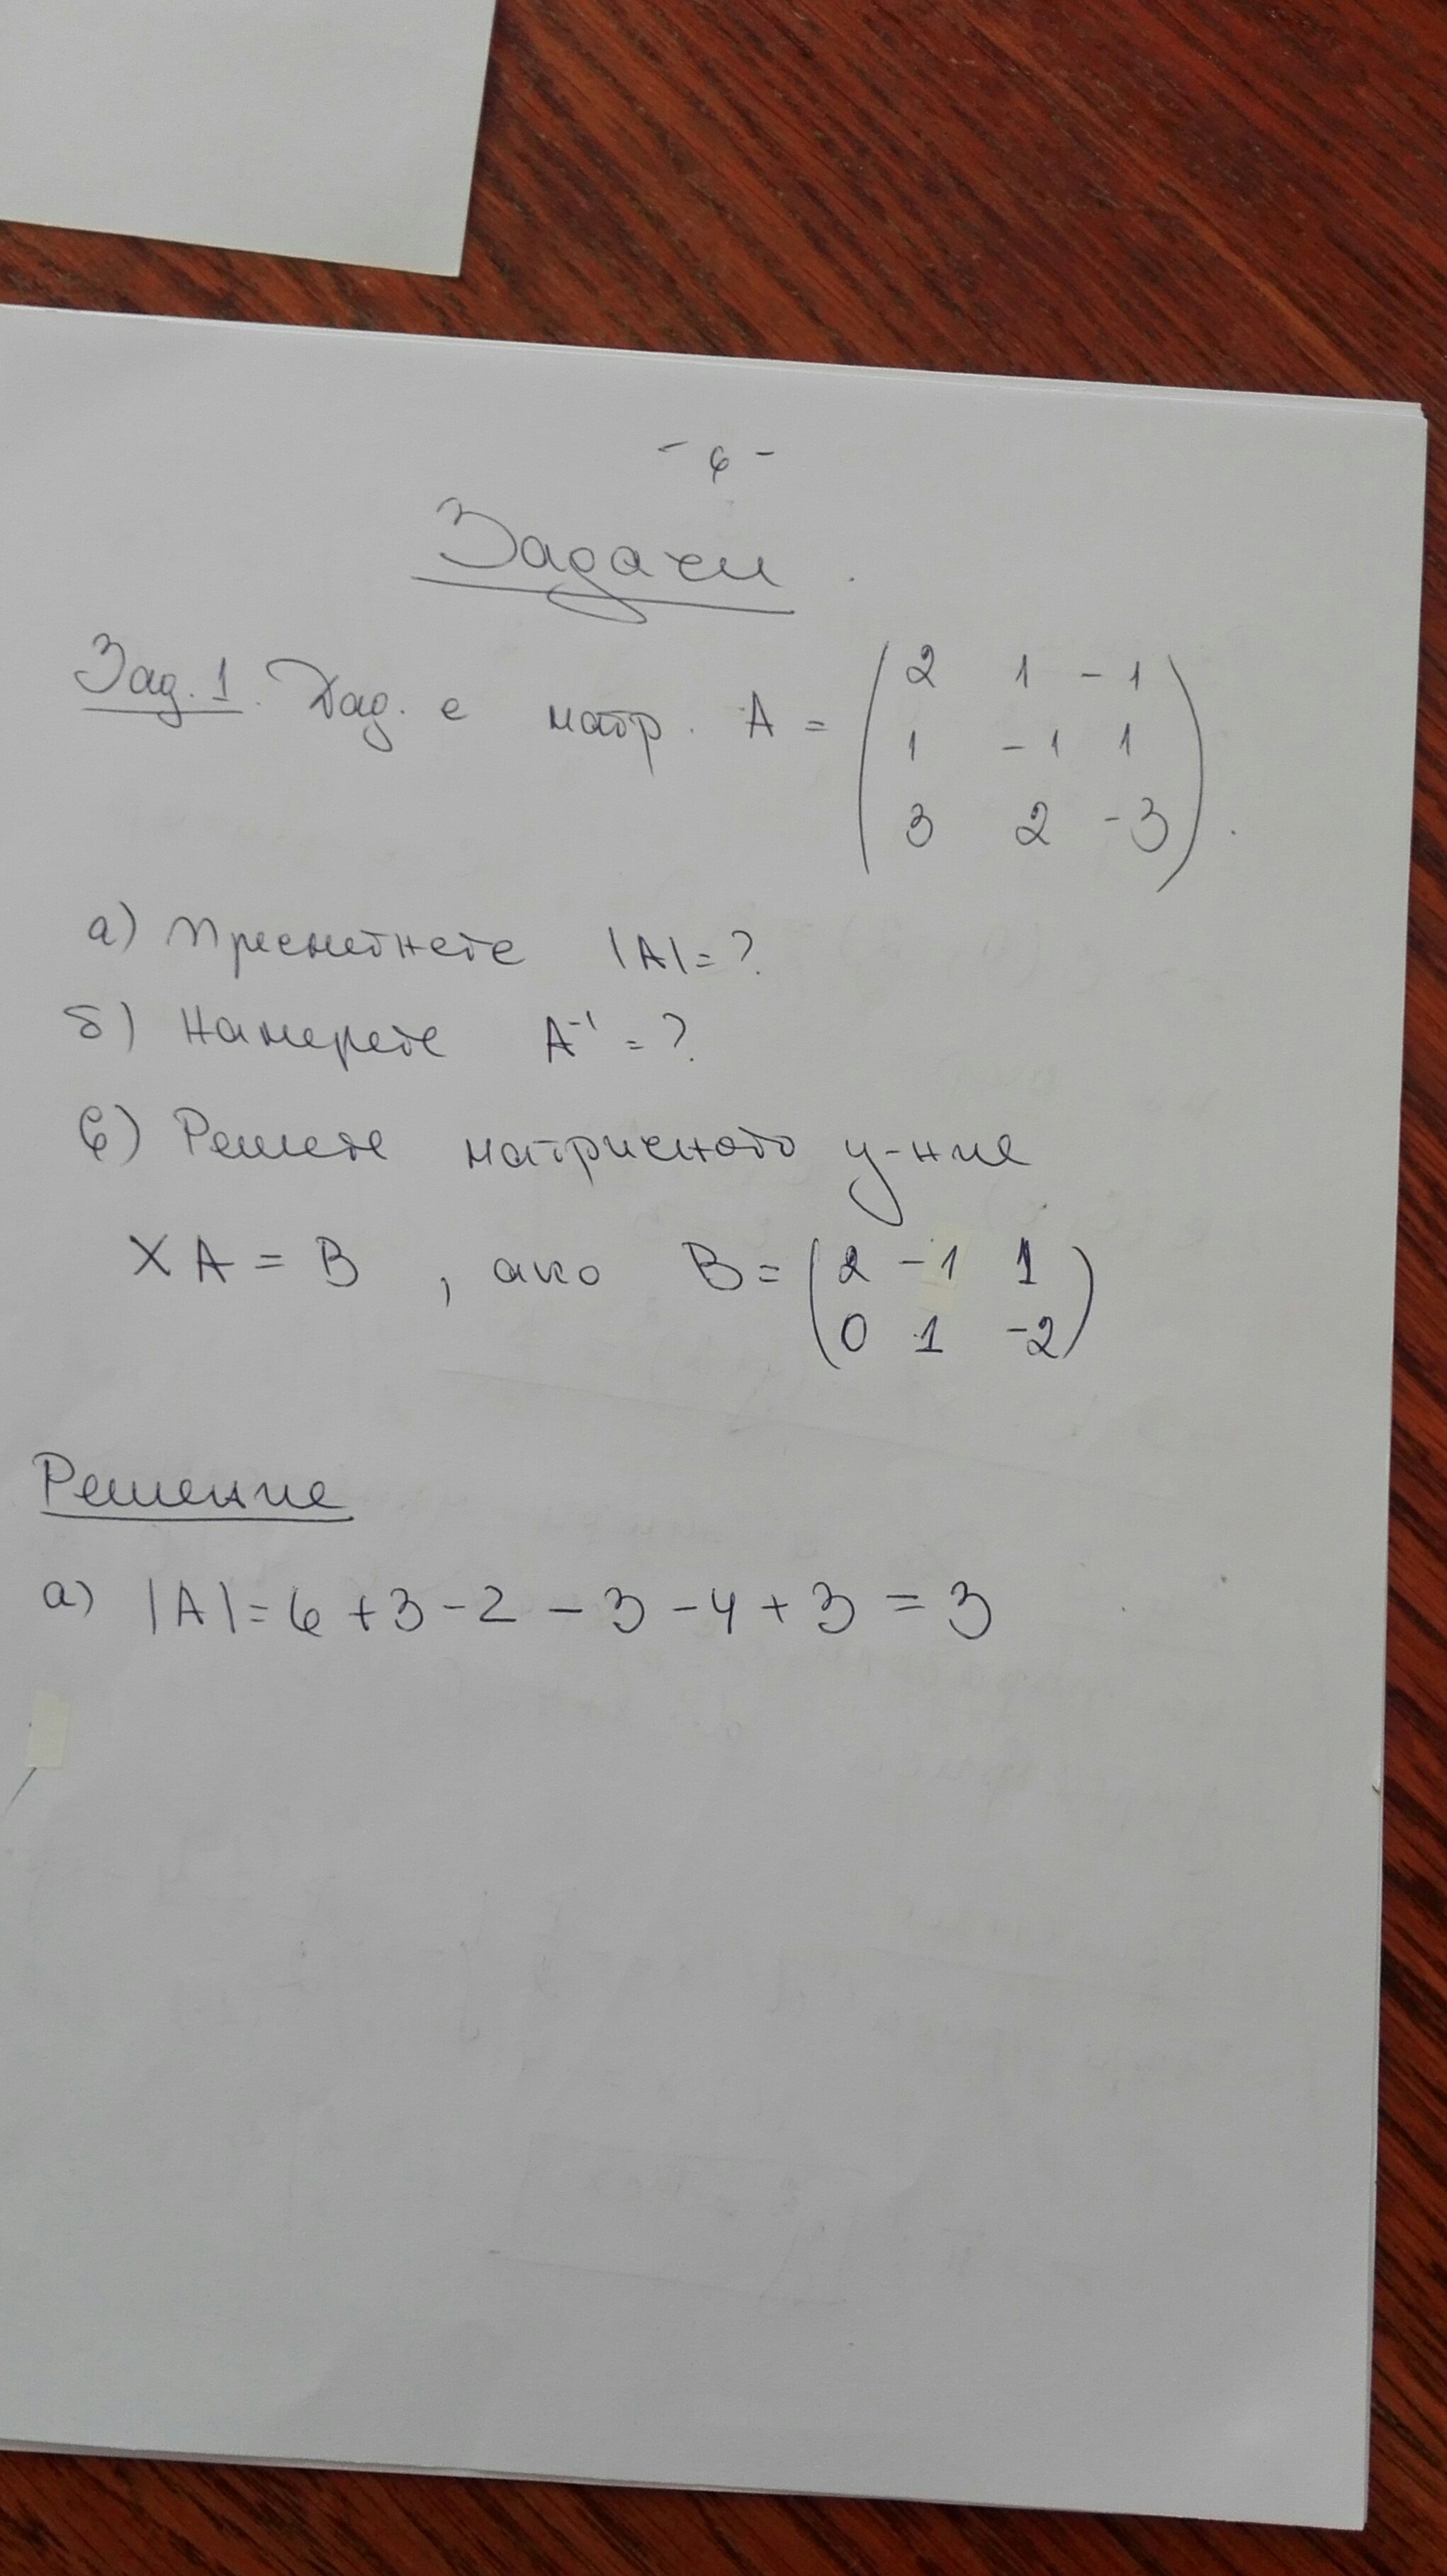 - 6 -
Задачи.
Зад. 1. Дад. е матр. A = ( 2 1 -1
1 -1 1
3 2 -3 ).
а) Пресметнете |A| = ?
б) Намерете A⁻¹ = ?
в) Решете матричното у-ние
XA = B , ако B = ( 2 -1 1
0 1 -2 )
Решение
а) |A| = 6 + 3 - 2 - 3 - 4 + 3 = 3